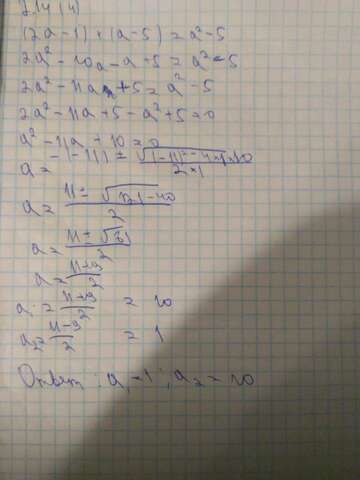 2.14 (4)
(2a-1)·(a-5)=a²-5
2a²-10a-a+5=a²-5
2a²-11a+5=a²-5
2a²-11a+5-a²+5=0
a²-11a+10=0
a=-(-11)±√(-11)²-4·1·10/2·1
a=11±√121-40/2
a=11±√81/2
a=11±9/2
a₁=11+9/2=10
a₂=11-9/2=1
Ответ: a₁=1; a₂=10